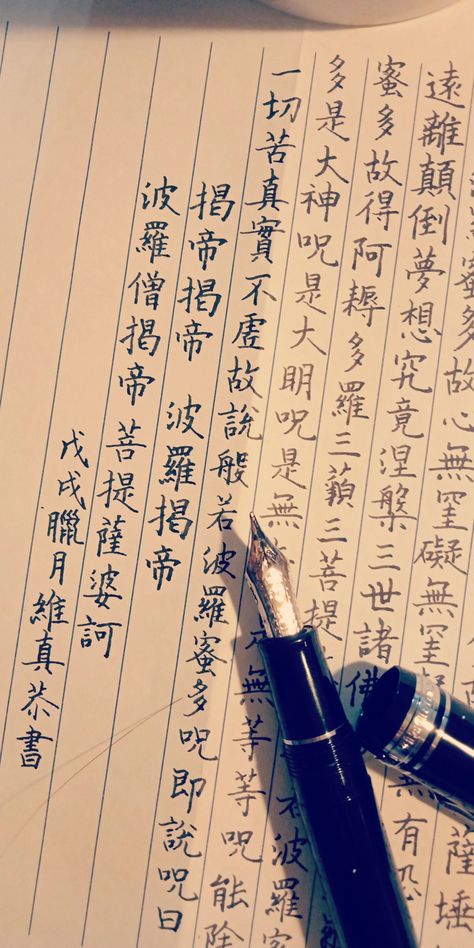 薩埵
蜜多故心無罣礙無罣無有恐
遠離顛倒夢想究竟涅槃三世諸佛
蜜多故得阿耨多羅三藐三菩提波羅
多是大神呪是大明呪是無無等等呪能除
一切苦真實不虛故說般若波羅蜜多呪即說呪曰
揭帝揭帝 波羅揭帝
波羅僧揭帝 菩提薩婆訶
戊戌臘月維真恭書